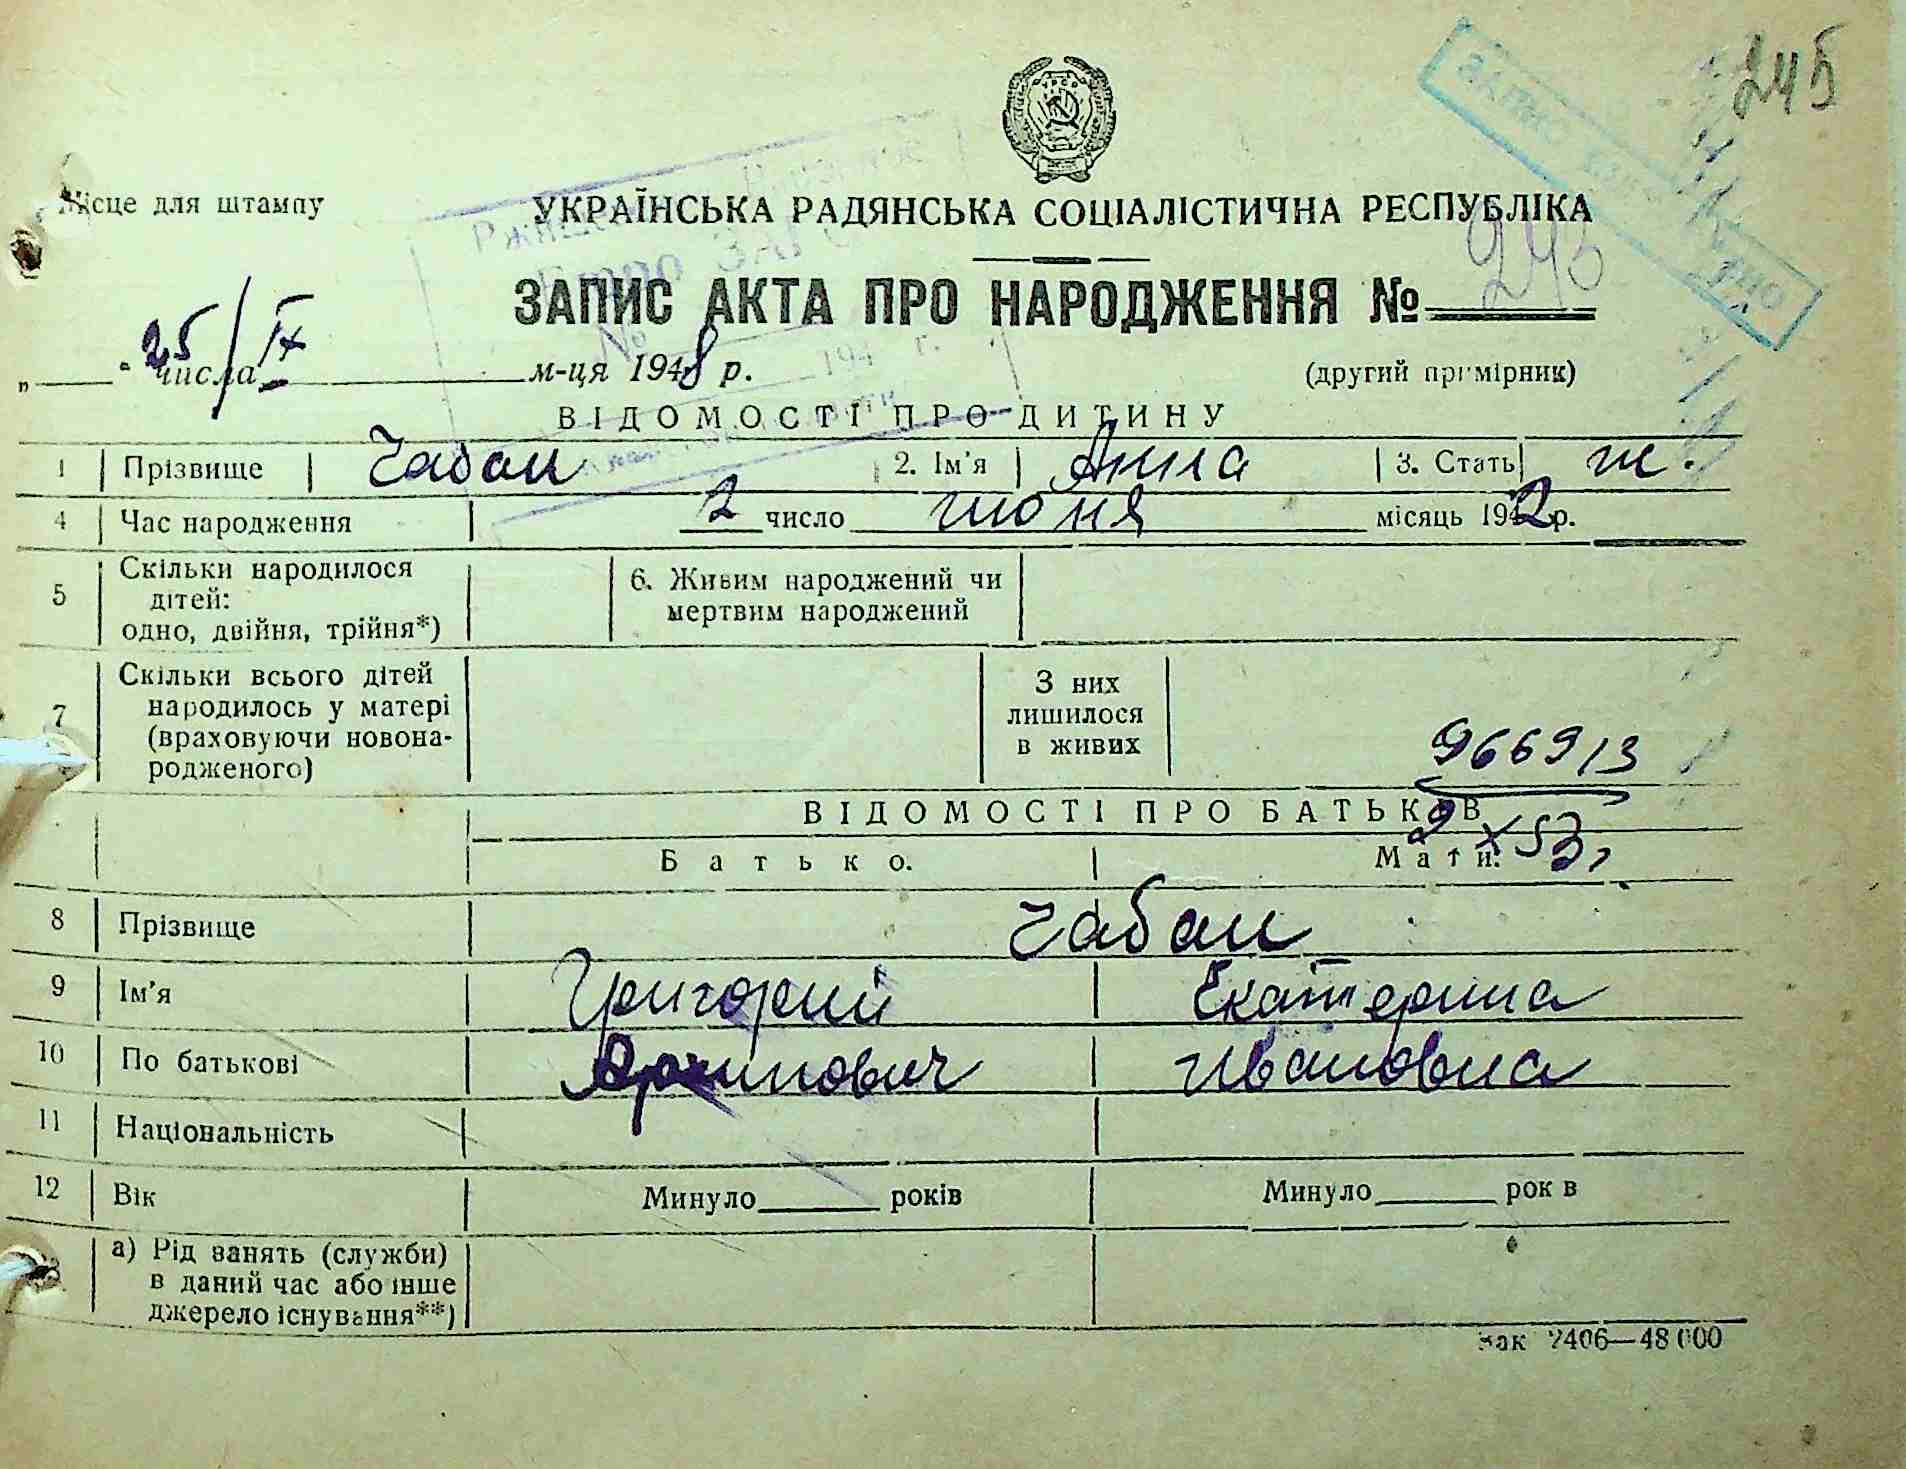 245
Місце для штампу
УКРАЇНСЬКА РАДЯНСЬКА СОЦІАЛІСТИЧНА РЕСПУБЛІКА
ЗАПИС АКТА ПРО НАРОДЖЕННЯ № 245
25/IX числа м-ця 1948 р.
(другий примірник)
ВІДОМОСТІ ПРО ДИТИНУ
1 Прізвище Чабан 2. Ім'я Анна 3. Стать ж.
4 Час народження 2 число июня місяць 1942 р.
5 Скільки народилося дітей: одно, двійня, трійня*) 6. Живим народжений чи мертвим народжений
7 Скільки всього дітей народилось у матері (враховуючи новонародженого) З них лишилося в живих
966913
ВІДОМОСТІ ПРО БАТЬКІВ
2 X 53
Батько. Мати.
8 Прізвище Чабан
9 Ім'я Григорий Екатерина
10 По батькові Архипович Ивановна
11 Національність
12 Вік Минуло років Минуло років
а) Рід занять (служби) в даний час або інше джерело існування**)
Зак 2406—48000